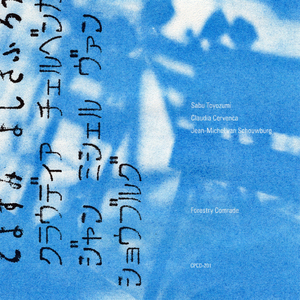 とよずみ よしさぶろ
クラウディア チェルベンカ
ジャン ミシェル ヴァン
ショウブルグ
Sabu Toyozumi
Claudia Cervenca
Jean-Michel van Schouwburg
Forestry Comrade